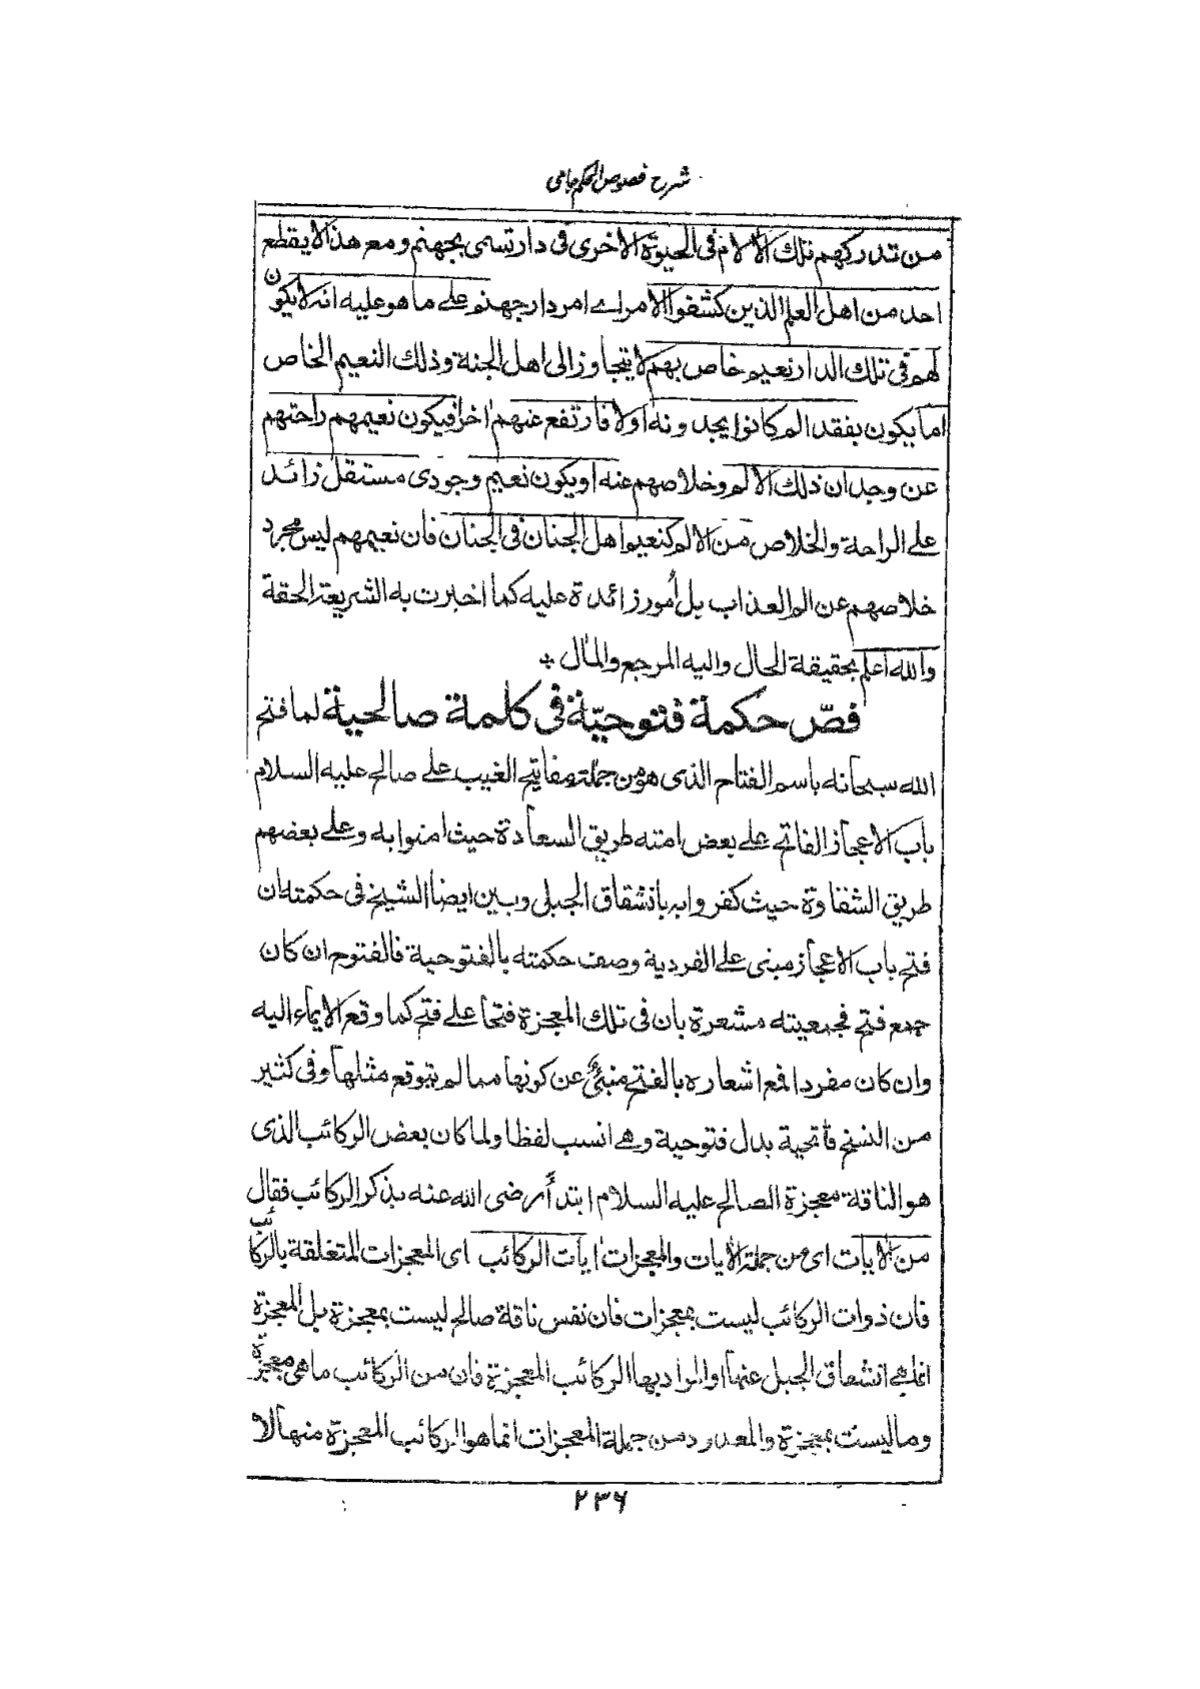 شرح فصوص الحكم جامى
من تدركهم تلك الآلام فى الحيوة الاخرى فى دار تسمى بجهنم ومع هذا لا يقطع
احد من اهل العلم الذين كشفوا الامر اے امر دار جهنم على ما هو عليه انه لا يكون
لهم فى تلك الدار نعيم خاص بهم لا يتجاوز الى اهل الجنة وذلك النعيم الخاص
اما يكون بفقد الم كانوا يجدونه اولا فارتفع عنهم اخرا فيكون نعيمهم راحتهم
عن وجدان ذلك الالم وخلاصهم عنه او يكون نعيم وجودى مستقل زائد
على الراحة والخلاص من الالم كنعيم اهل الجنان فى الجنان فان نعيمهم ليس مجرد
خلاصهم عن الم العذاب بل أمور زائدة عليه كما اخبرت به الشريعة الحقة
والله اعلم بحقيقة الحال واليه المرجع والمآل *
فصّ حكمة فتوحيّة فى كلمة صالحية لما فتح
الله سبحانه باسم الفتاح الذى هو من جملة مفاتيح الغيب على صالح عليه السلام
باب الاعجاز الفاتح على بعض امته طريق السعادة حيث امنوا به وعلى بعضهم
طريق الشقاوة حيث كفروا به بانشقاق الجبل وبين ايضا الشيخ فى حكمته ان
فتح باب الاعجاز مبنى على الفردية وصف حكمته بالفتوحية فالفتوح ان كان
جمع فتح فجمعيته مشعرة بان فى تلك المعجزة فتحا على فتح كما وقع الايماء اليه
وان كان مفردا فمع اشعاره بالفتح منبئ عن كونها مما لم يتوقع مثلها وفى كثير
من النسخ فاتحية بدل فتوحية وهى انسب لفظا ولما كان بعض الركائب الذى
هو الناقة معجزة الصالح عليه السلام ابتدأ رضى الله عنه بذكر الركائب فقال
من الايات اى من جملة الايات والمعجزات ايات الركائب اى المعجزات المتعلقة بالركائب
فان ذوات الركائب ليست بمعجزات فان نفس ناقة صالح ليست بمعجزة بل المعجزة
انما هى انشقاق الجبل عنها او المراد بها الركائب المعجزة فان من الركائب ما هى معجزة
وما ليست بمعجزة والمعدود من جملة المعجزات انما هو الركائب المعجزة منها لا
٢٣٦